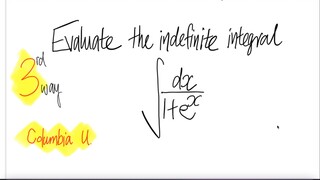 Evaluate the indefinite integral
3rd way
∫ dx / 1+e^x
Columbia U